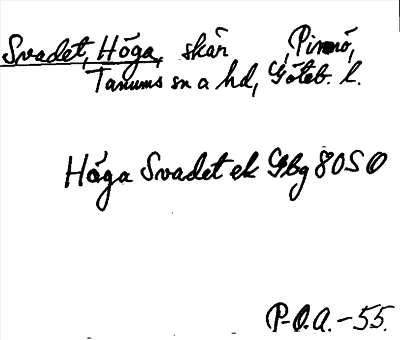 Svadet, Höga, skär , Pinnö,
Tanums sn o hd, Göteb. l.
Höga Svadet ek Gbg 80 SO
P-O.A. -55.